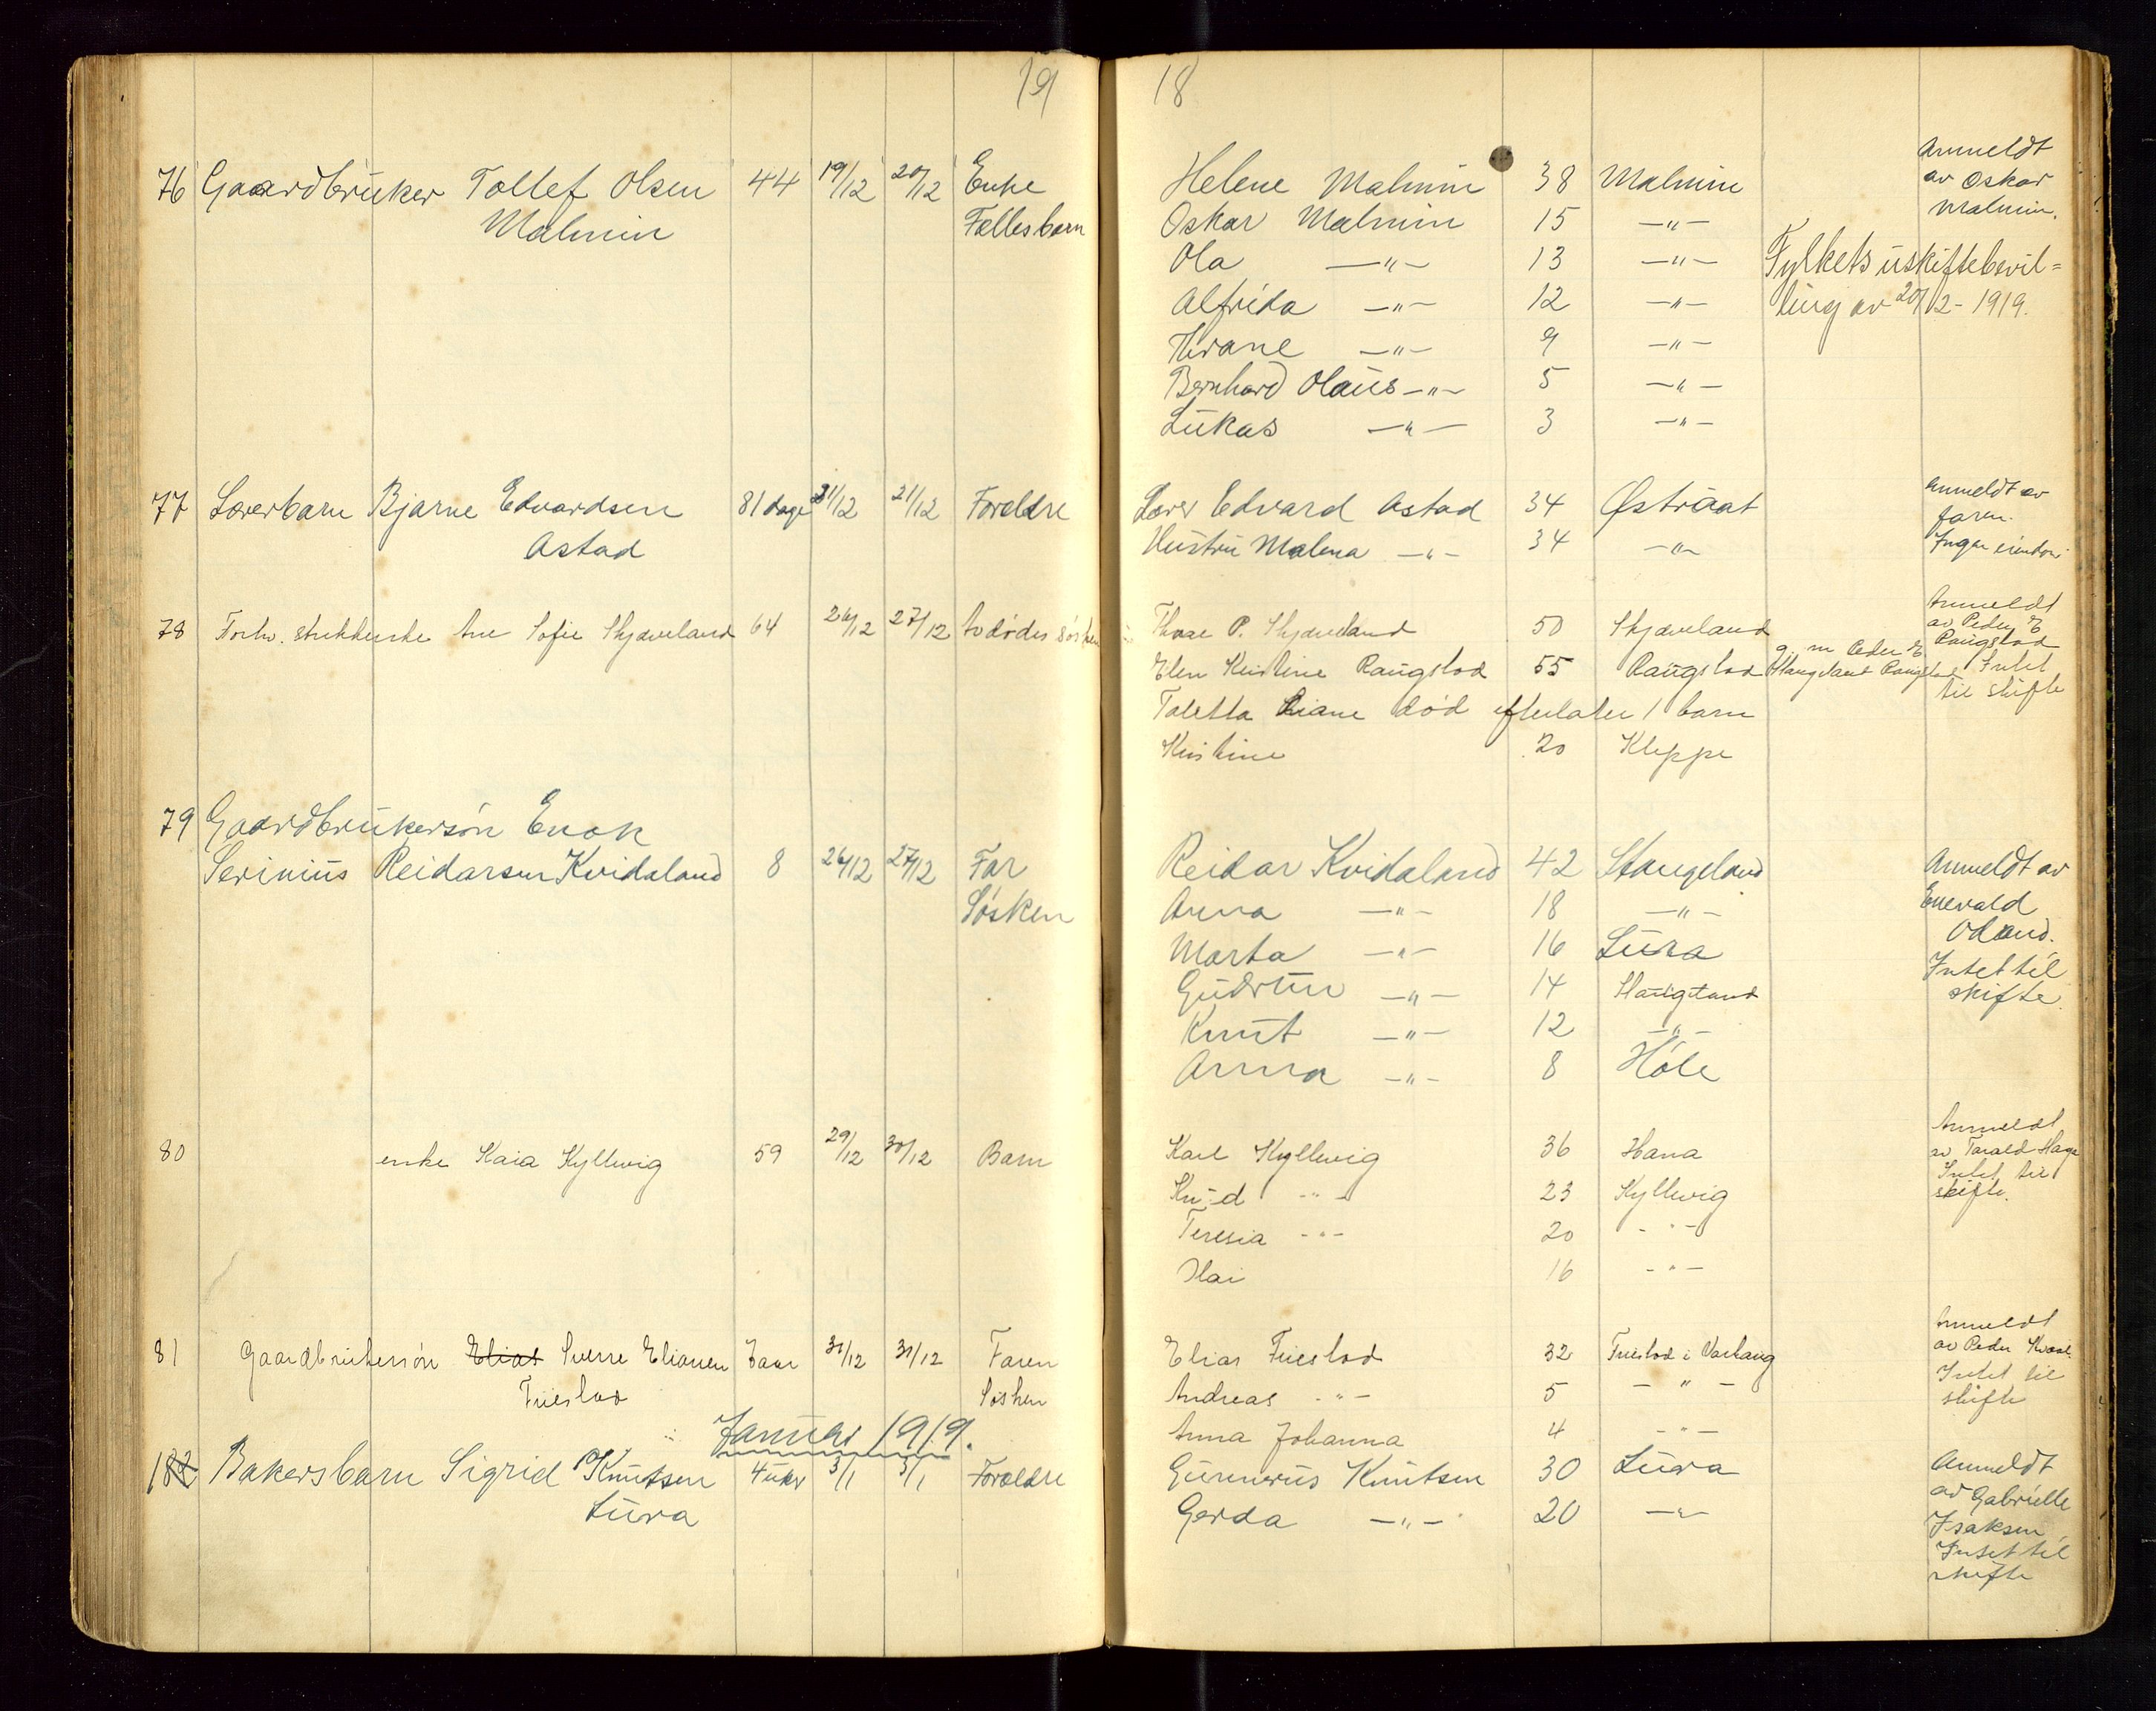 19 18
76 Gaardbruker Tollef Olsen 44 19/12 20/12 Enke Helene Malmin 38 Malmin Anmeldt
Malmin Fellesbarn Oskar Malmin 15 —"— av Oskar
Malmin.
Ola —"— 13 —"— Fylkets uskiftebevil=
Alfrida —"— 12 —"— ling av 20/12-1919.
Thrane —"— 9 —"—
Bernhard Olaus —"— 5 —"—
Lukas —"— 3 —"—
77 Lærerbarn Bjarne Edvardsen 81 dage 21/12 21/12 Foreldre Lærer Edvard Astad 34 Østraat Anmeldt av
Astad Hustru Malena —"— 34 —"— faren.
Ingen eiendom
78 Forhv. strikkerske Ane Sofie Skjæveland 64 26/12 27/12 Avdødes søsken Thore P. Skjæveland 50 Skjæveland Anmeldt
av Peder E
Elen Kristine Raugstad 55 Raugstad g. m Peder E. Raugstad
Stangeland Raugstad Intet
til skifte
Taletta Liane død efterlater 1 barn
Kristine 20 Kleppe
79 Gaardbrukersøn Enok
Serinius Reidarsen Kvidaland 8 26/12 27/12 Far Reidar Kvidaland 42 Stangeland Anmeldt av
Søsken Anna —"— 18 —"— Enevald
Marta —"— 16 Lura Odland.
Gudrun —"— 14 Stangeland Intet til
Knut —"— 12 —"— skifte.
Anna —"— 8 Høle
80 enke Kaia Kyllevig 59 29/12 30/12 Barn Karl Kyllevig 36 Hana Anmeldt
av Tarald Haga
Knud -"- 23 Kyllevig Intet til
skifte.
Teresia -"- 20 -"-
Ilai 16 -"-
81 Gaardbrukersøn Elias Sverre Eliassen 2 aar 30/12 31/12 Faren Elias Fuestad 32 Fuestad i Varhaug Anmeldt
av Peder
Fuestad Søsken Andreas -"- 5 —"— Intet til
skifte
Januar 1919. Anna Johanna 4 -"-
1 82 Bakersbarn Sigrid Knutsen 4 uker 3/1 3/1 Foreldre Gunnerius Knutsen 30 Lura Anmeldt
Lura Gerda —"— 20 —"— av Gabrielle
Isaksen,
Intet til
skifte